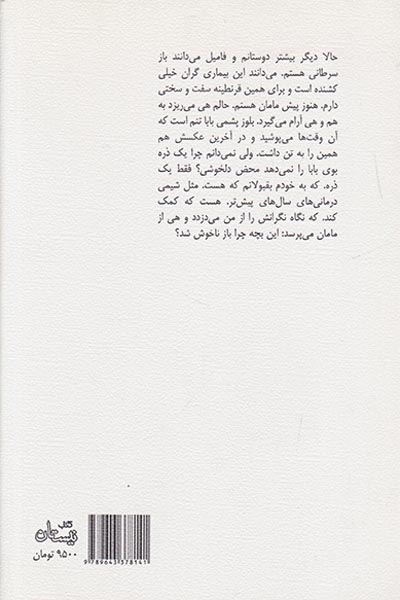 حالا دیگر بیشتر دوستانم و فامیل می‌دانند باز
سرطانی هستم. می‌دانند این بیماری گران خیلی
کشنده است و برای همین قرنطینه سفت و سختی
دارم. هنوز پیش مامان هستم. حالم هی می‌ریزد به
هم و هی آرام می‌گیرد. بلوز پشمی بابا تنم است که
آن وقت‌ها می‌پوشید و در آخرین عکسش هم
همین را به تن داشت. ولی نمی‌دانم چرا یک ذره
بوی بابا را نمی‌دهد محض دلخوشی؟ فقط یک
ذره، که به خودم بقبولانم که هست. مثل شیمی
درمانی‌های سال‌های پیش‌تر. هست که کمک
کند. که نگاه نگرانش را از من می‌دزدد و هی از
مامان می‌پرسد: این بچه چرا باز ناخوش شد؟
کتاب
نیستان
۹۵۰۰ تومان
9 789643 378141